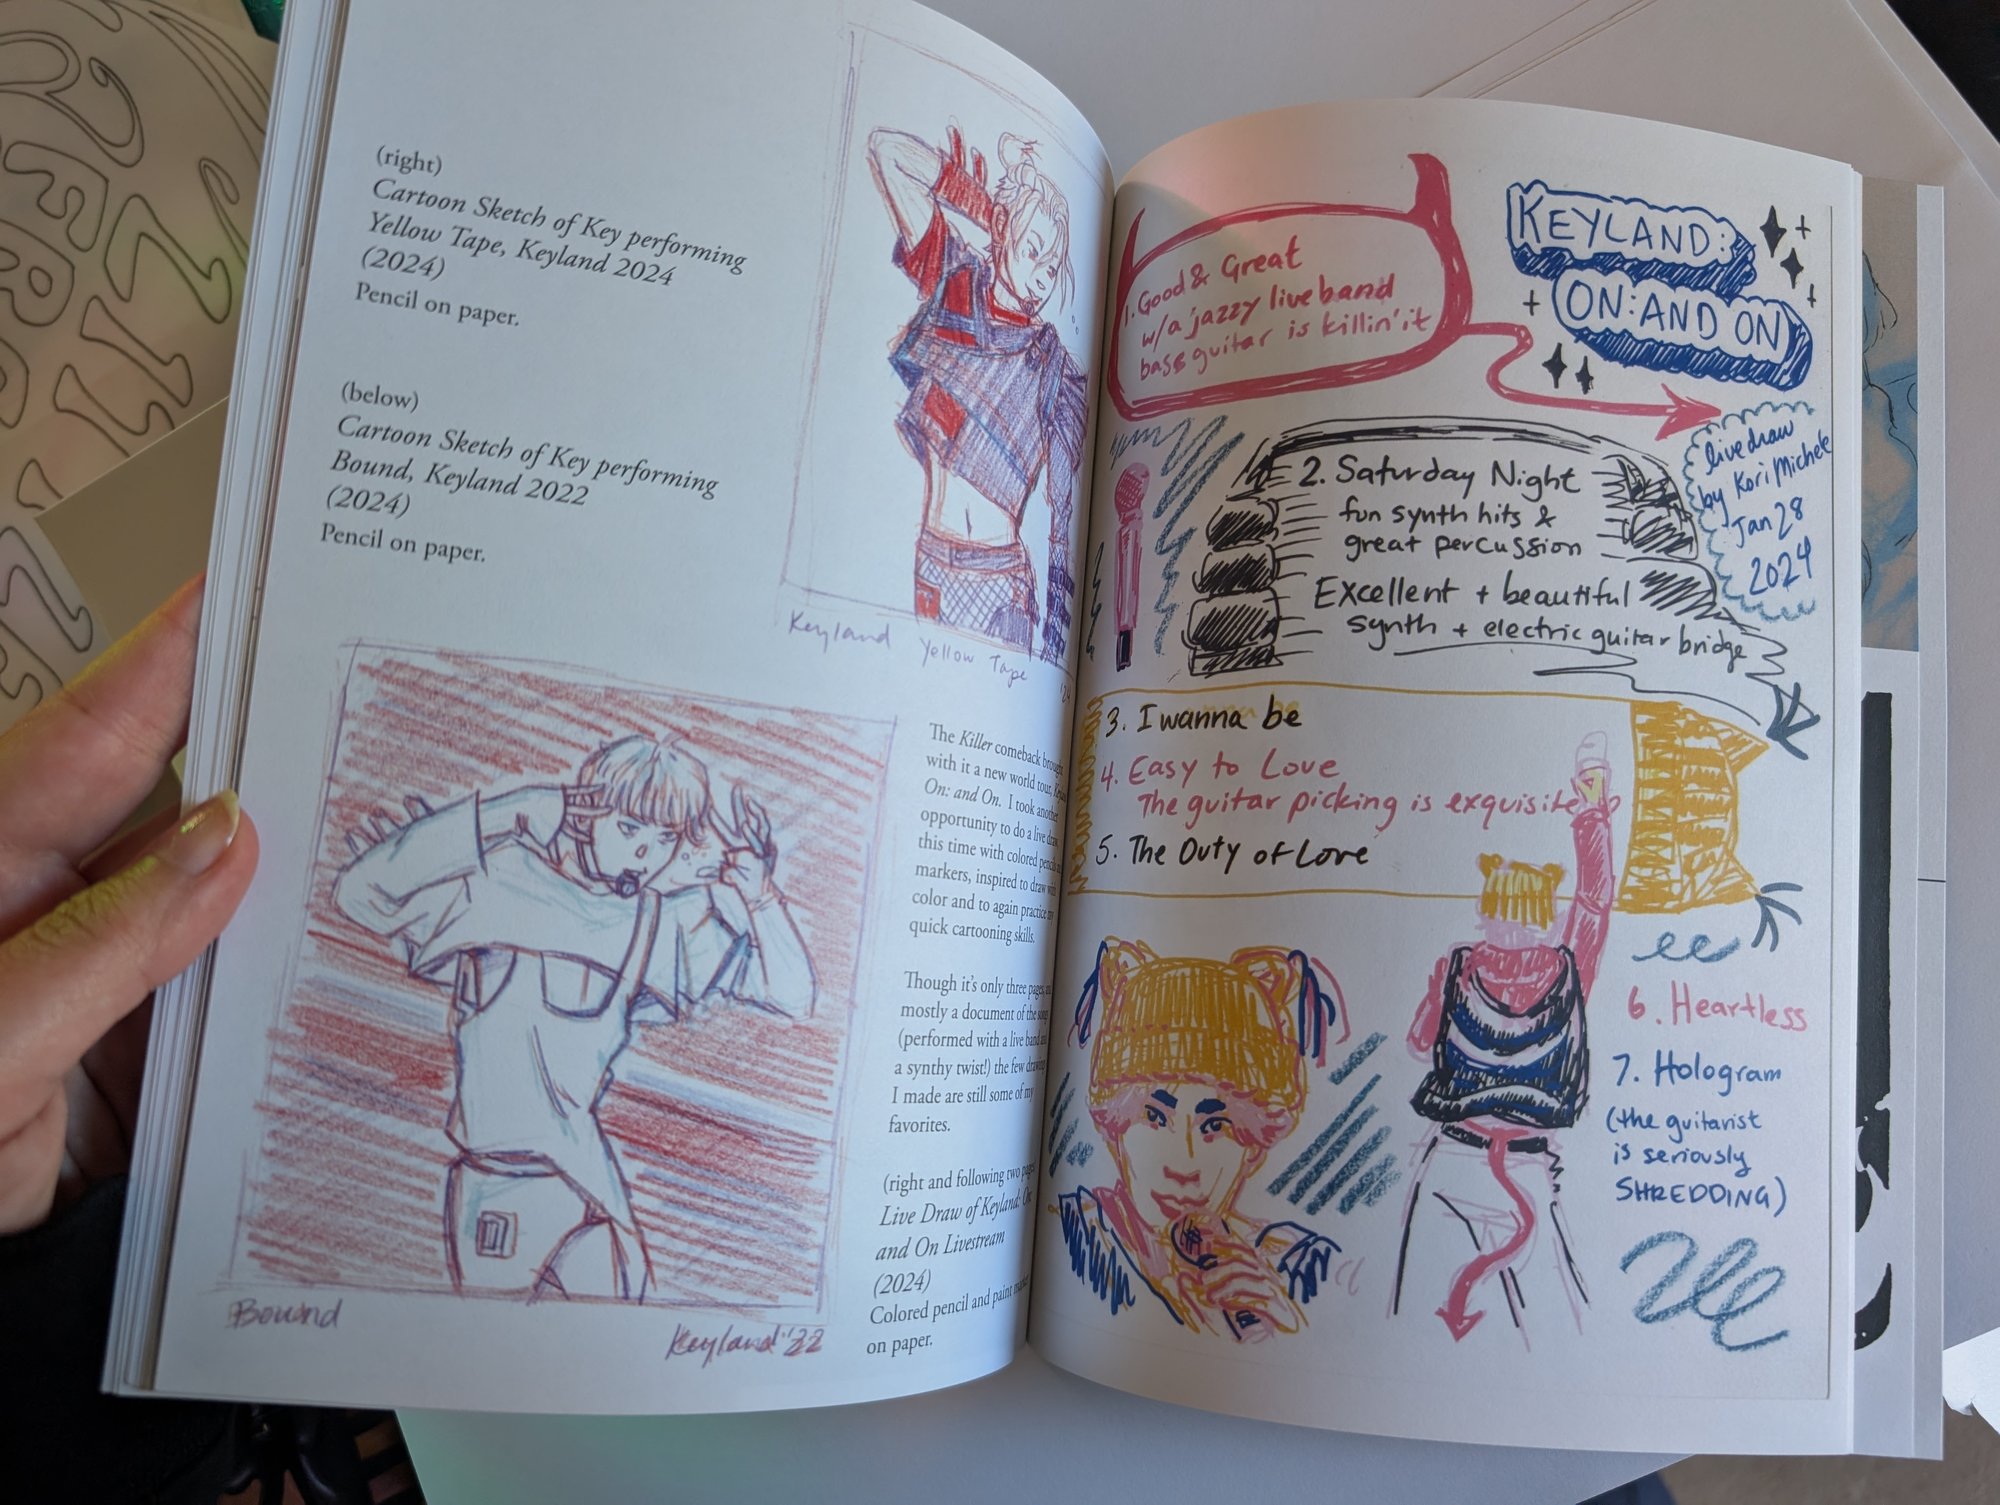 (right)
Cartoon Sketch of Key performing
Yellow Tape, Keyland 2024
(2024)
Pencil on paper.
(below)
Cartoon Sketch of Key performing
Bound, Keyland 2022
(2024)
Pencil on paper.
Keyland Yellow Tape
'24
Bound
Keyland '22
The Killer comeback brought
with it a new world tour,
On: and On. I took another
opportunity to do a live draw,
this time with colored pencils
markers, inspired to draw with
color and to again practice my
quick cartooning skills.
Though it's only three pages,
mostly a document of the
(performed with a live band and
a synthy twist!) the few
I made are still some of my
favorites.
(right and following two pages)
Live Draw of Keyland: On:
and On Livestream
(2024)
Colored pencil and paint
on paper.
KEYLAND:
ON: AND ON
1. Good & Great
w/a jazzy live band
bass guitar is killin' it
live draw
by Kori Michele
Jan 28
2024
2. Saturday Night
fun synth hits &
great percussion
Excellent + beautiful
synth + electric guitar bridge
3. I wanna be
4. Easy to Love
The guitar picking is exquisite
5. The Duty of Love
6. Heartless
7. Hologram
(the guitarist
is seriously
SHREDDING)